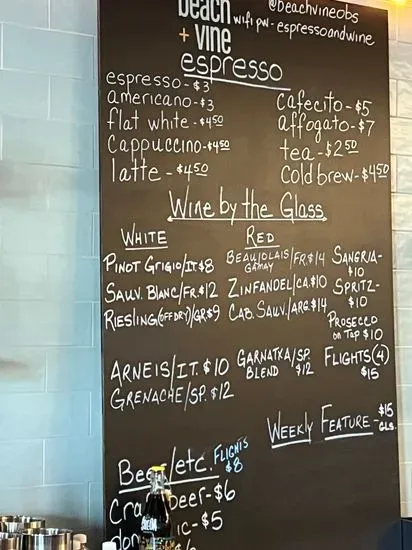 beach
+ vine
@beachvineobs
wifi pw - espressoandwine
espresso
espresso - $3
americano - $3
flat white - $4.50
Cappuccino - $4.50
latte - $4.50
Cafecito - $5
affogato - $7
tea - $2.50
Cold brew - $4.50
Wine by the Glass
WHITE
PINOT GRIGIO/IT $8
SAUV. BLANC/FR. $12
RIESLING (OFF DRY)/GR $9
ARNEIS/IT. $10
GRENACHE/SP. $12
RED
BEAUJOLAIS/FR. $14
GAMAY
ZINFANDEL/CA. $10
CAB. SAUV./ARG. $14
GARNATXA/SP.
BLEND $12
SANGRIA -
$10
SPRITZ -
$10
PROSECCO
on TAP $10
FLIGHTS (4)
$15
WEEKLY FEATURE - $15
GLS.
/etc. FLIGHTS
$8
beer - $6
- $5
$6